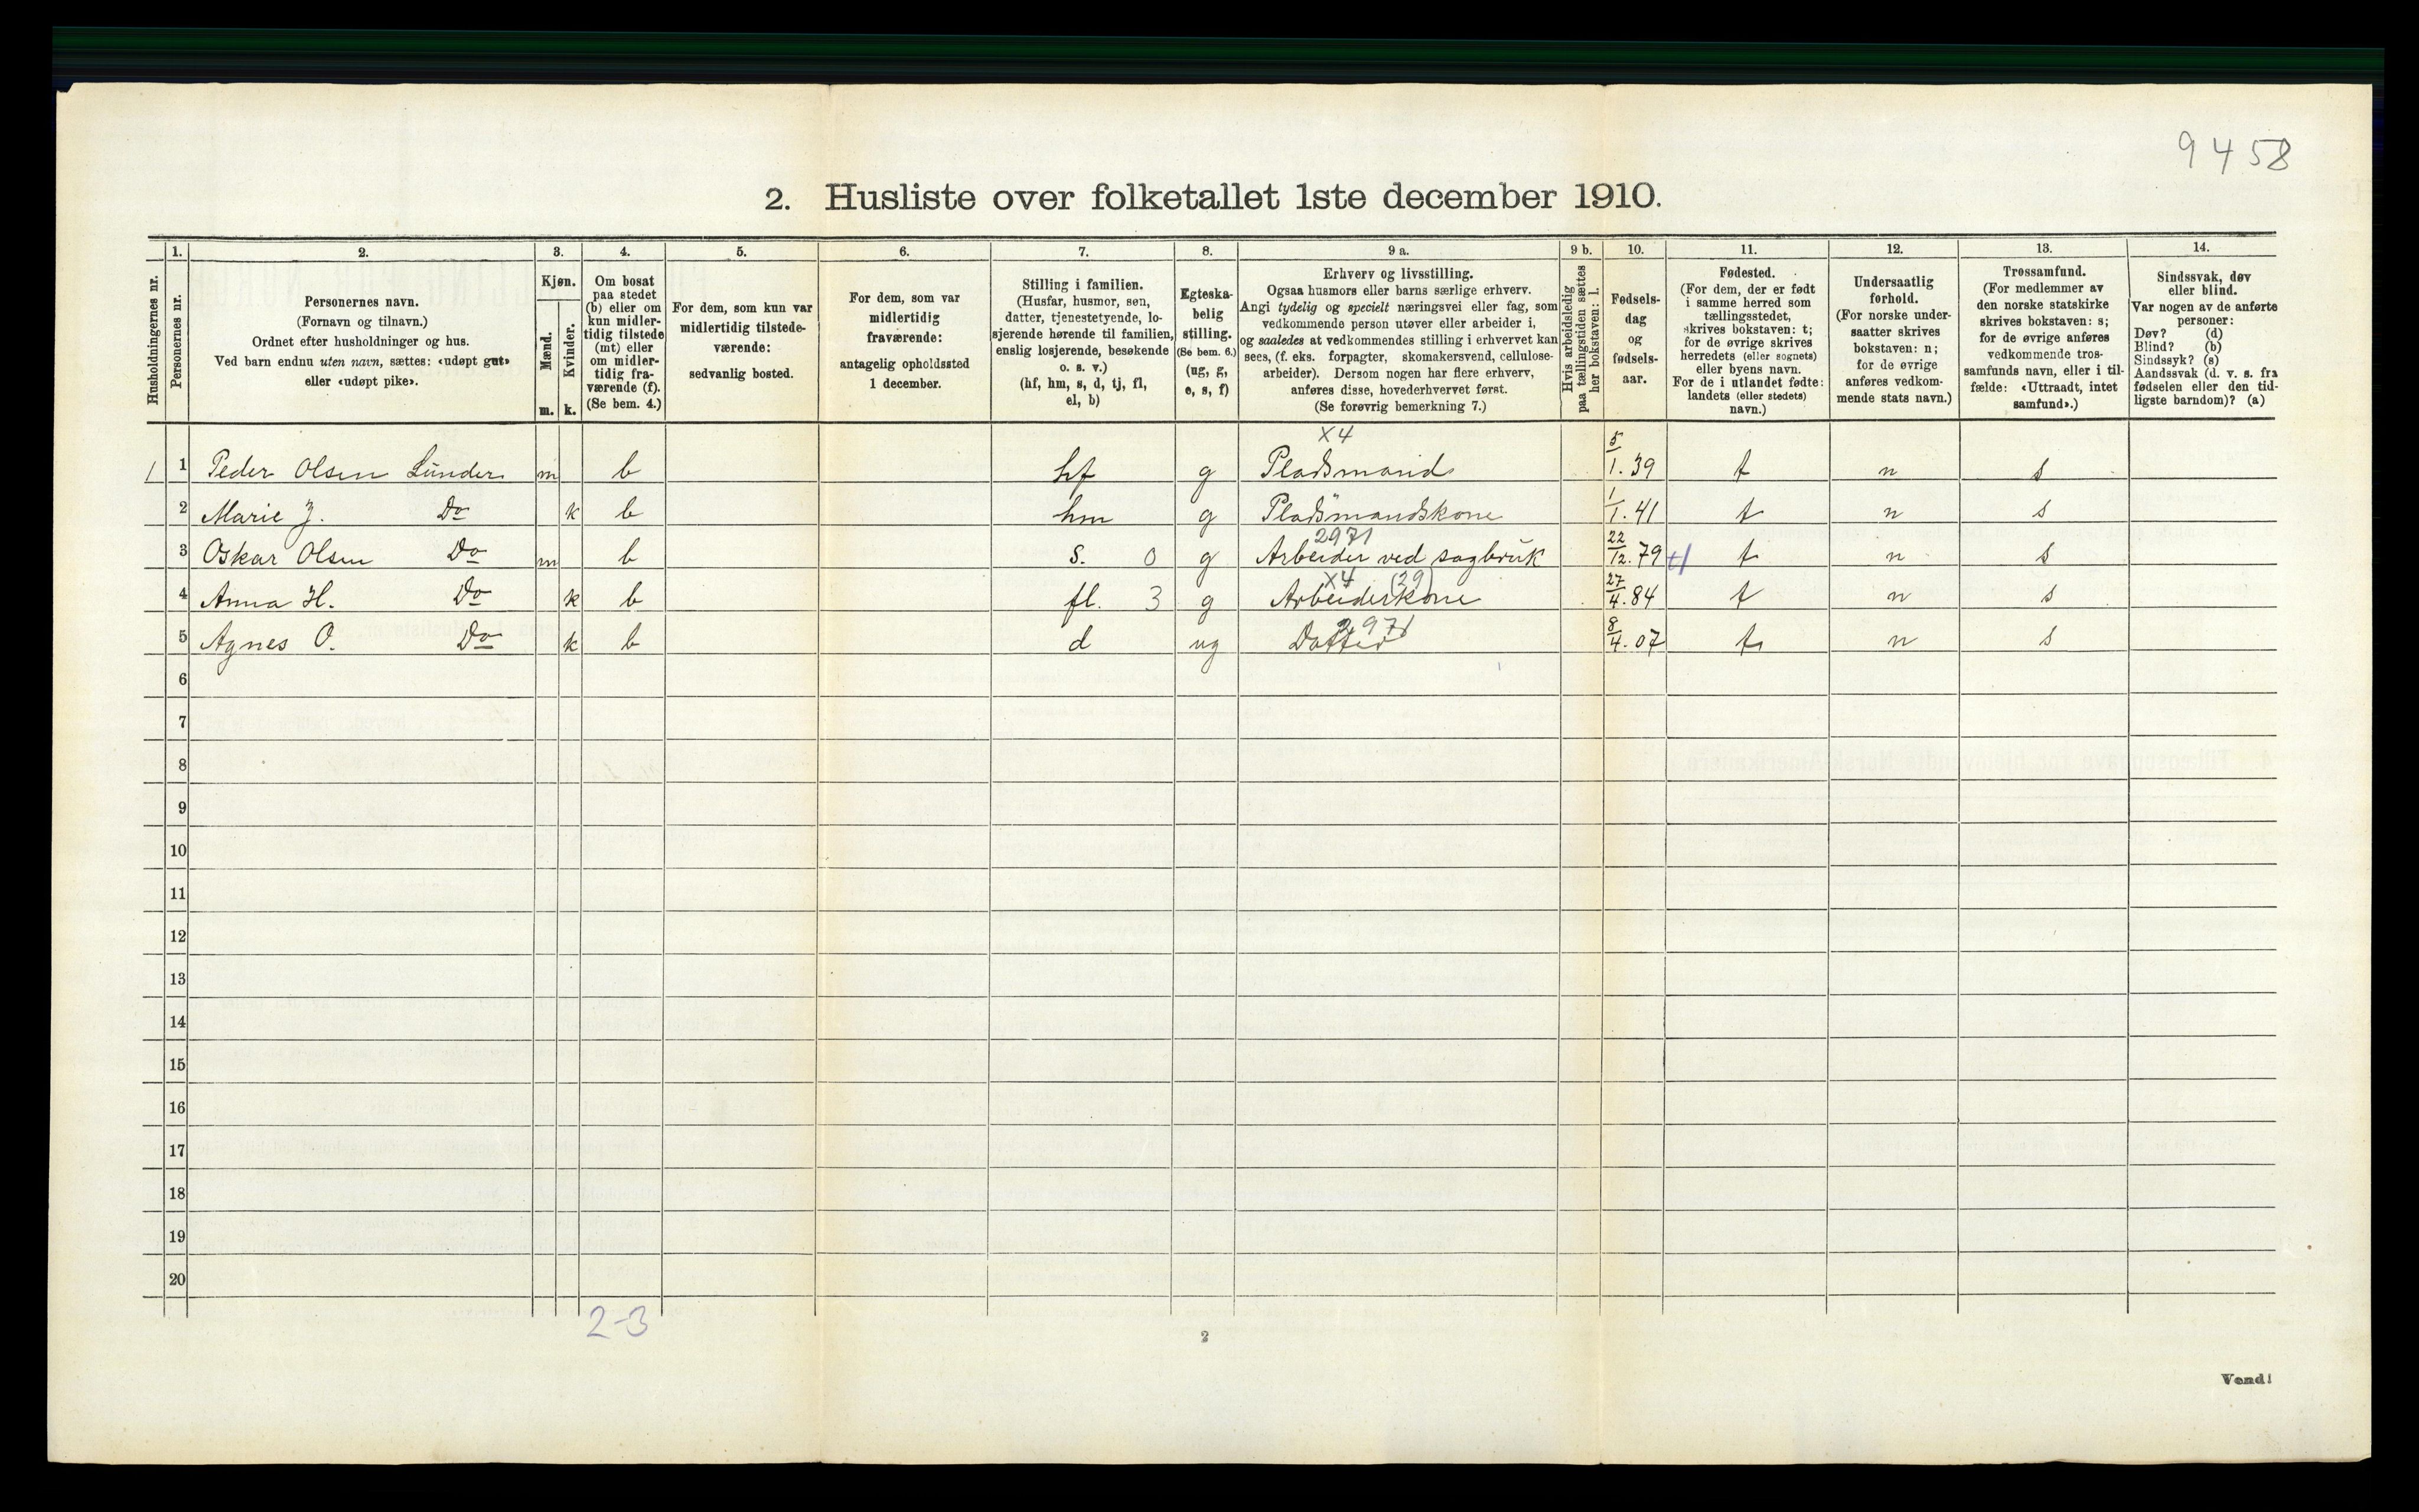 9458
2. Husliste over folketallet 1ste december 1910.
Husholdningernes nr.
1.
Personernes nr.
2.
Personernes navn.
(Fornavn og tilnavn.)
Ordnet efter husholdninger og hus.
Ved barn endnu uten navn, sættes: «udøpt gut»
eller «udøpt pike».
3.
Kjøn.
Mænd.
m.
Kvinder.
k.
4.
Om bosat
paa stedet
(b) eller om
kun midler-
tidig tilstede
(mt) eller
om midler-
tidig fra-
værende (f).
(Se bem. 4.)
5.
For dem, som kun var
midlertidig tilstede-
værende:
sedvanlig bosted.
6.
For dem, som var
midlertidig
fraværende:
antagelig opholdssted
1 december.
7.
Stilling i familien.
(Husfar, husmor, søn,
datter, tjenestetyende, lo-
sjerende hørende til familien,
enslig losjerende, besøkende
o. s. v.)
(hf, hm, s, d, tj, fl,
el, b)
8.
Egteska-
belig
stilling.
(Se bem. 6.)
(ug, g,
e, s, f)
9 a.
Erhverv og livsstilling.
Ogsaa husmors eller barns særlige erhverv.
Angi tydelig og specielt næringsvei eller fag, som
vedkommende person utøver eller arbeider i,
og saaledes at vedkommendes stilling i erhvervet kan
sees, (f. eks. forpagter, skomakersvend, cellulose-
arbeider). Dersom nogen har flere erhverv,
anføres disse, hovederhvervet først.
(Se forøvrig bemerkning 7.)
9 b.
Hvis arbeidsledig
paa tællingstiden sættes
her bokstaven: l.
10.
Fødsels-
dag
og
fødsels-
aar.
11.
Fødested.
(For dem, der er født
i samme herred som
tællingsstedet,
skrives bokstaven: t;
for de øvrige skrives
herredets (eller sognets)
eller byens navn.
For de i utlandet fødte:
landets (eller stedets)
navn.)
12.
Undersaatlig
forhold.
(For norske under-
saatter skrives
bokstaven: n;
for de øvrige
anføres vedkom-
mende stats navn.)
13.
Trossamfund.
(For medlemmer av
den norske statskirke
skrives bokstaven: s;
for de øvrige anføres
vedkommende tros-
samfunds navn, eller i til-
fælde: «Uttraadt, intet
samfund».)
14.
Sindssvak, døv
eller blind.
Var nogen av de anførte
personer:
Døv? (d)
Blind? (b)
Sindssyk? (s)
Aandssvak (d. v. s. fra
fødselen eller den tid-
ligste barndom)? (a)
X4
1 1 Peder Olsen Lunder m b hf g Pladsmand 5/1. 39 t n s
2 Marie J. Do k b hm g Pladsmandskone 1/1. 41 t n s
2971
3 Oskar Olsen Do m b s. 0 g Arbeider ved sagbruk 22/12. 79 t n s
X4 (29)
4 Anna H. Do k b fl. 3 g Arbeiderkone 27/4. 84 t n s
2971
5 Agnes O. Do k b d ug Datter 8/4. 07 t n s
6
7
8
9
10
11
12
13
14
15
16
17
18
19
20
2-3
2
Vend!